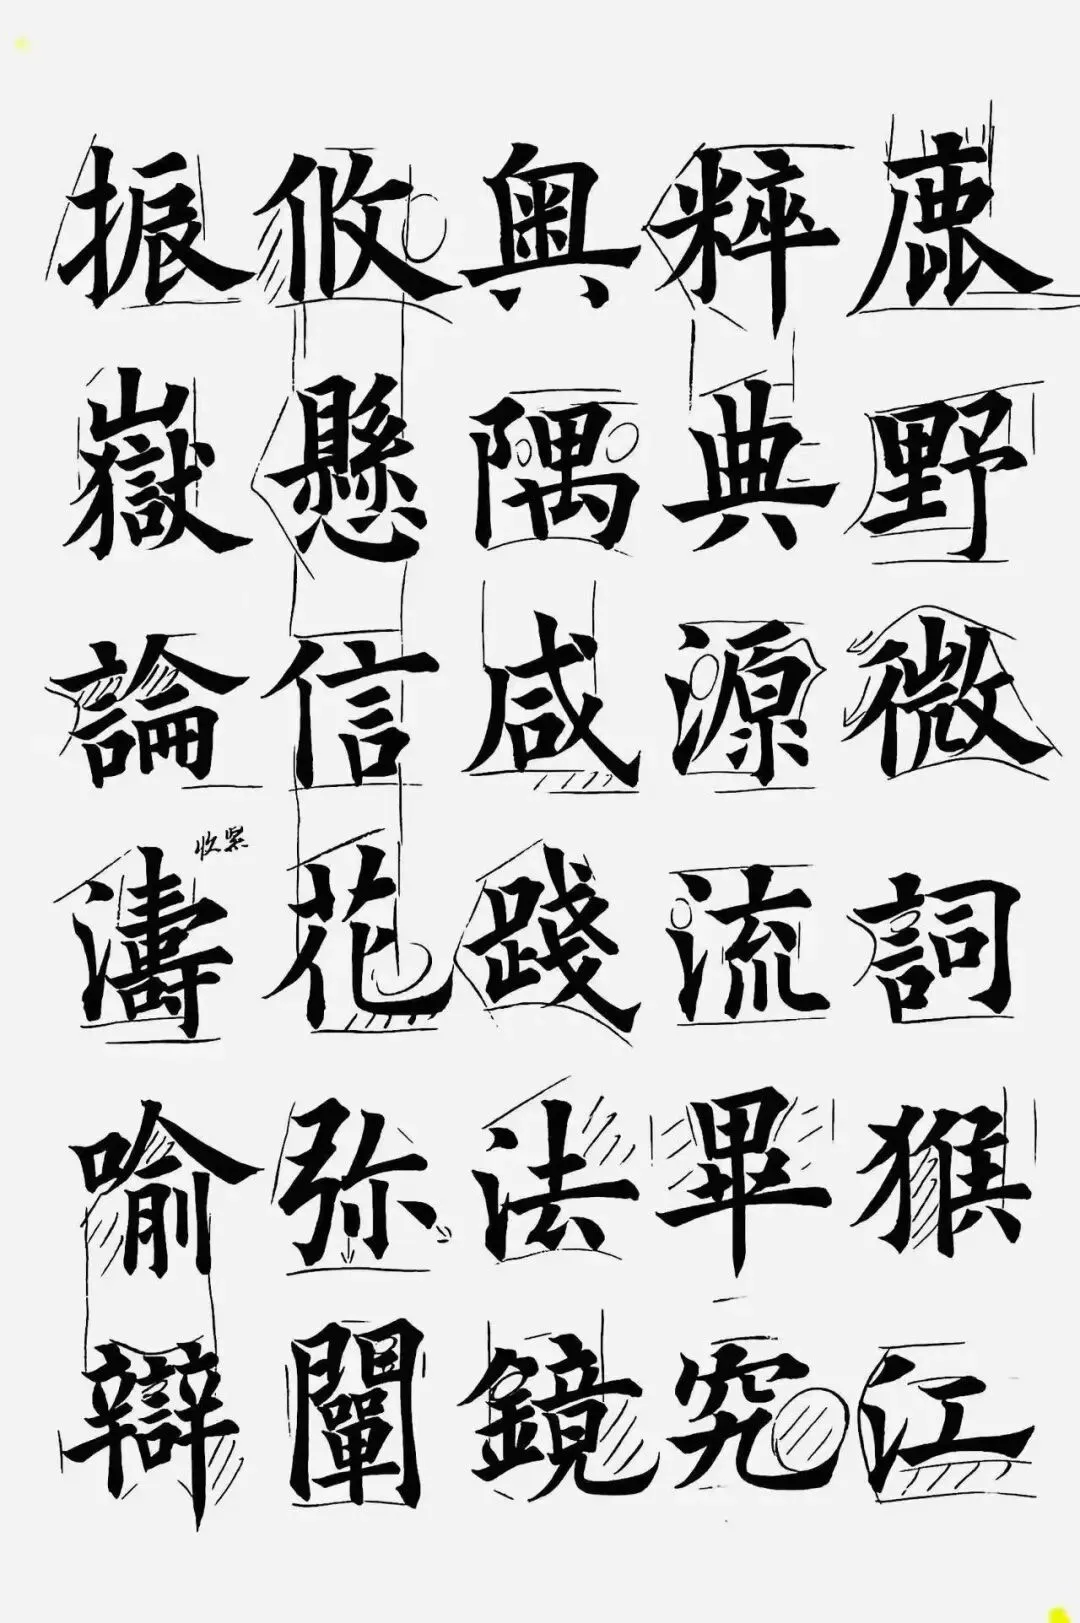 振攸奥粹鹿
嶽懸隅典野
論信咸源微
收緊
濤花踐流詞
喻弥法畢猴
辯闡鏡究江